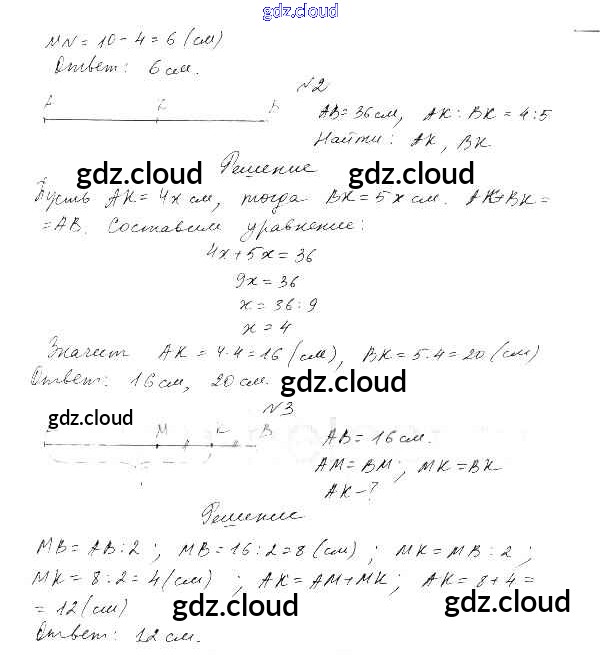 gdz.cloud
MN = 10 - 4 = 6 (см)
Ответ: 6 см.
№2
A K B
AB = 36 см, AK : BK = 4 : 5
Найти: AK, BK
Решение
gdz.cloud gdz.cloud
Пусть AK = 4x см, тогда BK = 5x см. AK + BK =
= AB. Составим уравнение:
4x + 5x = 36
9x = 36
x = 36 : 9
x = 4
Значит AK = 4 · 4 = 16 (см), BK = 5 · 4 = 20 (см)
Ответ: 16 см, 20 см.
gdz.cloud
№3
gdz.cloud
M K B
AB = 16 см.
AM = BM; MK = BK
AK - ?
gdz.cloud
Решение
MB = AB : 2; MB = 16 : 2 = 8 (см); MK = MB : 2;
MK = 8 : 2 = 4 (см); AK = AM + MK; AK = 8 + 4 =
= 12 (см)
gdz.cloud gdz.cloud
Ответ: 12 см.